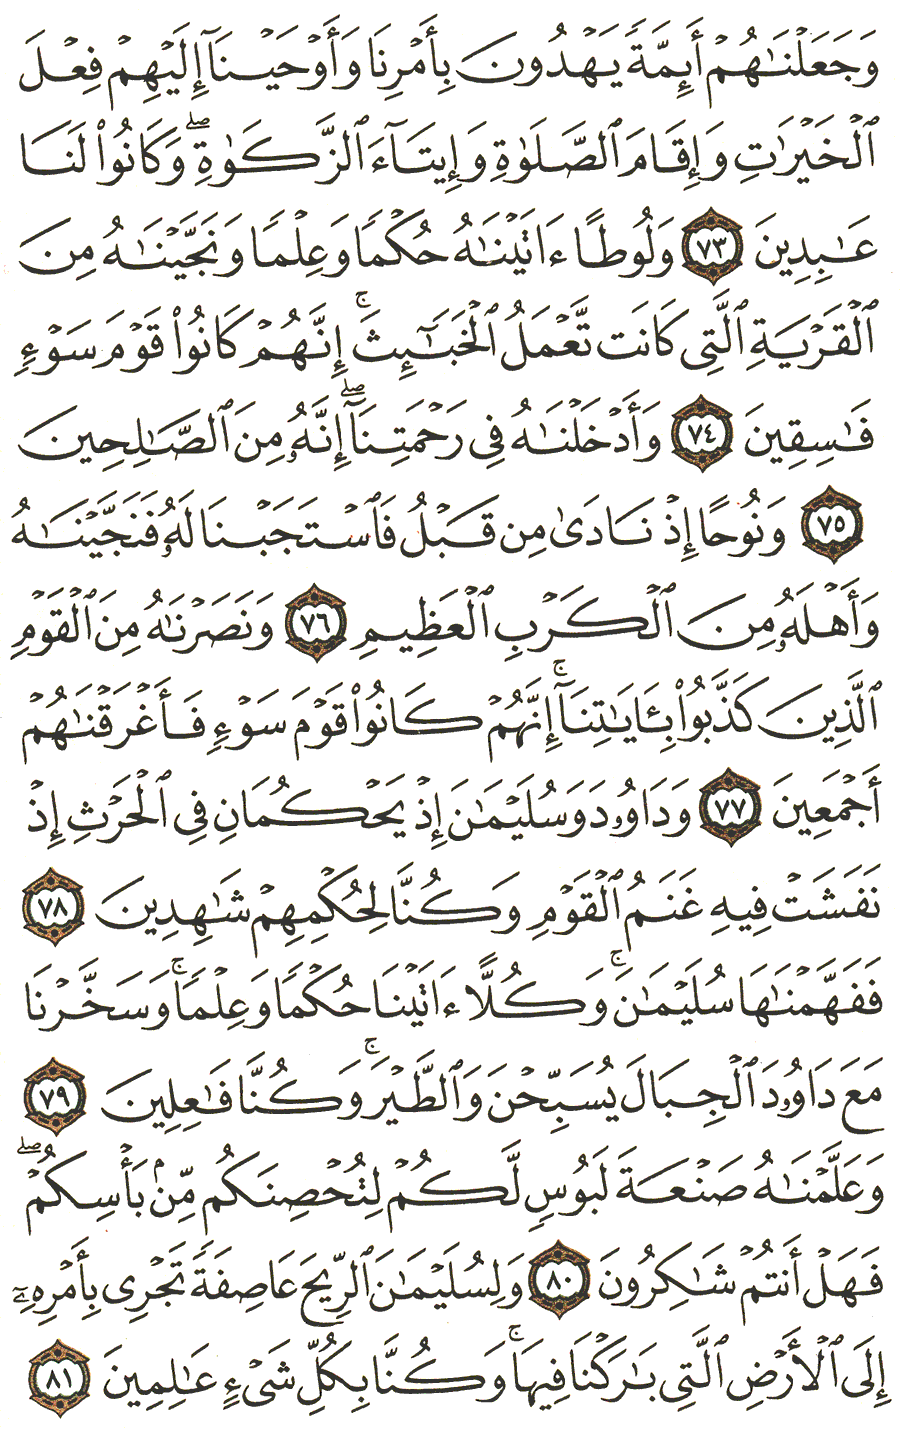 وَجَعَلْنَٰهُمْ أَئِمَّةً يَهْدُونَ بِأَمْرِنَا وَأَوْحَيْنَآ إِلَيْهِمْ فِعْلَ
ٱلْخَيْرَٰتِ وَإِقَامَ ٱلصَّلَوٰةِ وَإِيتَآءَ ٱلزَّكَوٰةِ ۖ وَكَانُوا۟ لَنَا
عَٰبِدِينَ ٧٣ وَلُوطًا ءَاتَيْنَٰهُ حُكْمًا وَعِلْمًا وَنَجَّيْنَٰهُ مِنَ
ٱلْقَرْيَةِ ٱلَّتِى كَانَت تَّعْمَلُ ٱلْخَبَٰٓئِثَ ۚ إِنَّهُمْ كَانُوا۟ قَوْمَ سَوْءٍ
فَٰسِقِينَ ٧٤ وَأَدْخَلْنَٰهُ فِى رَحْمَتِنَآ ۖ إِنَّهُۥ مِنَ ٱلصَّٰلِحِينَ
٧٥ وَنُوحًا إِذْ نَادَىٰ مِن قَبْلُ فَٱسْتَجَبْنَا لَهُۥ فَنَجَّيْنَٰهُ
وَأَهْلَهُۥ مِنَ ٱلْكَرْبِ ٱلْعَظِيمِ ٧٦ وَنَصَرْنَٰهُ مِنَ ٱلْقَوْمِ
ٱلَّذِينَ كَذَّبُوا۟ بِـَٔايَٰتِنَآ ۚ إِنَّهُمْ كَانُوا۟ قَوْمَ سَوْءٍ فَأَغْرَقْنَٰهُمْ
أَجْمَعِينَ ٧٧ وَدَاوُۥدَ وَسُلَيْمَٰنَ إِذْ يَحْكُمَانِ فِى ٱلْحَرْثِ إِذْ
نَفَشَتْ فِيهِ غَنَمُ ٱلْقَوْمِ وَكُنَّا لِحُكْمِهِمْ شَٰهِدِينَ ٧٨
فَفَهَّمْنَٰهَا سُلَيْمَٰنَ ۚ وَكُلًّا ءَاتَيْنَا حُكْمًا وَعِلْمًا ۚ وَسَخَّرْنَا
مَعَ دَاوُۥدَ ٱلْجِبَالَ يُسَبِّحْنَ وَٱلطَّيْرَ ۚ وَكُنَّا فَٰعِلِينَ ٧٩
وَعَلَّمْنَٰهُ صَنْعَةَ لَبُوسٍ لَّكُمْ لِتُحْصِنَكُم مِّنۢ بَأْسِكُمْ ۖ
فَهَلْ أَنتُمْ شَٰكِرُونَ ٨٠ وَلِسُلَيْمَٰنَ ٱلرِّيحَ عَاصِفَةً تَجْرِى بِأَمْرِهِۦٓ
إِلَى ٱلْأَرْضِ ٱلَّتِى بَٰرَكْنَا فِيهَا ۚ وَكُنَّا بِكُلِّ شَىْءٍ عَٰلِمِينَ ٨١